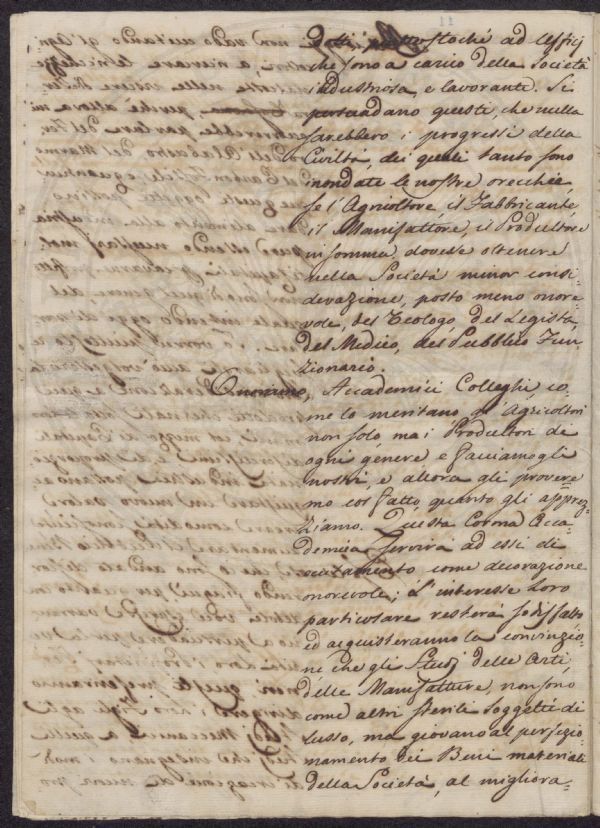 Dotti, piuttostochè ad Uffizj
che sono a carico della Società
industriosa, e lavorante. Si
persuadano questi, che nulla
sarebbero i progressi della
Civiltà, dei quali tanto sono
inondate le nostre orecchie,
se l'Agricoltore, il Fabbricante
il Manifattore, il Produttore
insomma, dovesse ottenere
nella Società minor consi-
derazione, posto meno onore-
vole, del Teologo, del Legista,
del Medico, del Pubblico Fun-
zionario.
Onoriamo, Accademici Colleghi, co-
me lo meritano gl'Agricoltori
non solo, ma i Produttori di
ogni genere e facciamogli
nostri, e allora gli provere-
mo col fatto, quanto gli apprez-
ziamo. Questa Corona Acca-
demica servirà ad essi di
eccitamento come decorazione
onorevole; L'interesse loro
particolare resterà sodisfatto
ed acquisteranno la convinzio-
ne che gli Studj delle Arti,
delle Manifatture, non sono
come altri sterili soggetti di
lusso, ma giovano al perfezio-
namento dei Beni materiali
della Società, al migliora-